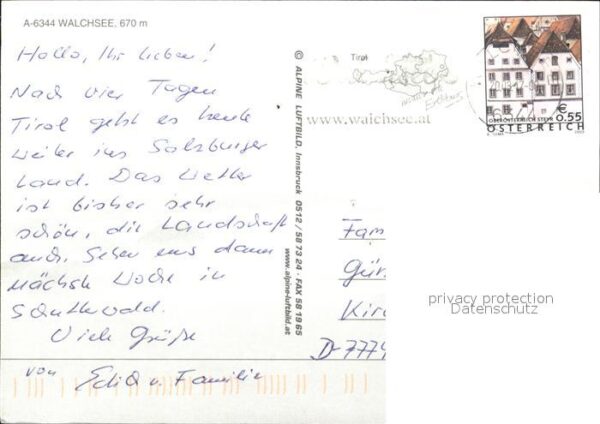 A-6344 WALCHSEE, 670 m
Hallo, Ihr Lieben!
Nach vier Tagen
Tirol geht es heute
weiter ins Salzburger
Land. Das Wetter
ist bisher sehr
schön, die Landschaft
auch. Sehen uns dann
nächste Woche in
Viele Grüße
von Familie
© ALPINE LUFTBILD, Innsbruck 0512 / 58 73 24 · FAX 58 19 65
www.alpine-luftbild.at
Tirol
www.walchsee.at
€ 0.55
OBERÖSTERREICH STEYR
ÖSTERREICH
Fam
Gün
Kirc
D-7774
privacy protection
Datenschutz